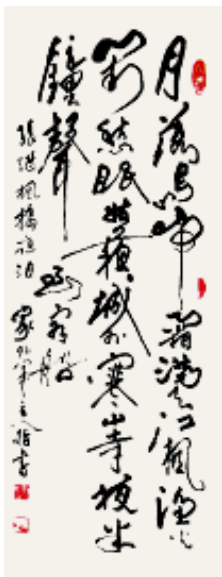 月落烏啼霜满天江楓渔火
对愁眠姑蘇城外寒山寺夜半
鐘聲到客船
張继楓橋夜泊